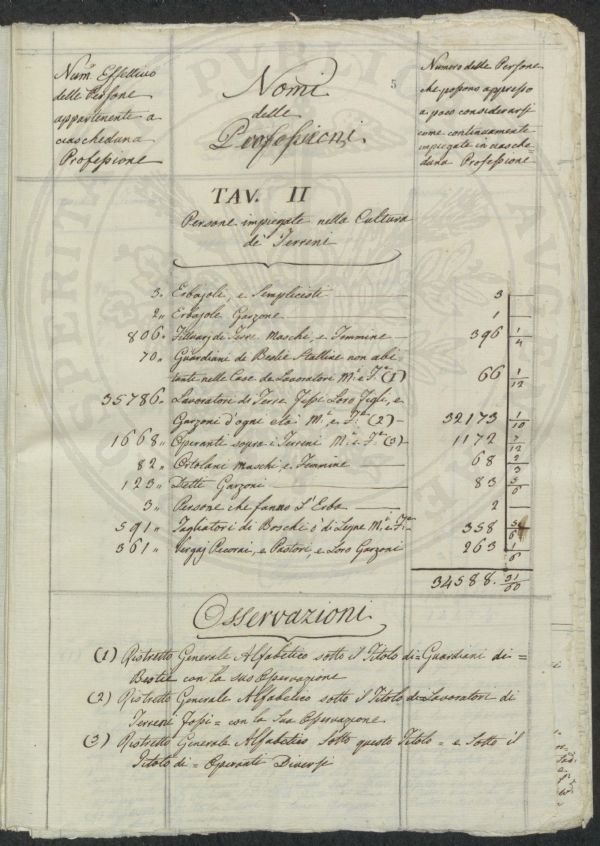 Num. Effettivo
delle Persone
appartenente a
ciascheduna
Professione
Nomi
delle
Professioni
5
Numero delle Persone
che possono appresso
a poco considerarsi
come continuamente
impiegate in ciasche
duna Professione
TAV. II
Persone impiegate nella Cultura
de' Terreni
3„ Erbajoli, e Semplicisti 3
2„ Erbajole Garzone 1
806„ Fittuarj di Terre Maschi, e Femmine 396 1/4
70„ Guardiani de Bestie Stalline non abi
tante nelle Case de Lavoratori M.i e F.e (1) 66 1/12
35786„ Lavoratori di Terre Fissi Loro Figli, e
Garzoni d'ogni età M.i e F.e (2) 32173 1/10
1668„ Operanti sopra i Terreni M.i e F.e (3) 1172 7/12
82„ Ortolani Maschi, e Femmine 68 2/3
123„ Detti Garzoni 83 5/6
3„ Persone che fanno l'Erba 2
591„ Tagliatori di Boschi o di Legne M.i e F.e 358
361„ Vergaj Pecorai, e Pastori, e Loro Garzoni 263 1/6
34588. 31/60
Osservazioni
(1) Ristretto Generale Alfabetico sotto il Titolo di = Guardiani di =
Bestie con la sua Osservazione
(2) Ristretto Generale Alfabetico sotto il Titolo di = Lavoratori di
Terreni Fissi = con la Sua Osservazione
(3) Ristretto Generale Alfabetico Sotto questo Titolo = e Sotto il
Titolo di = Operanti Diversi